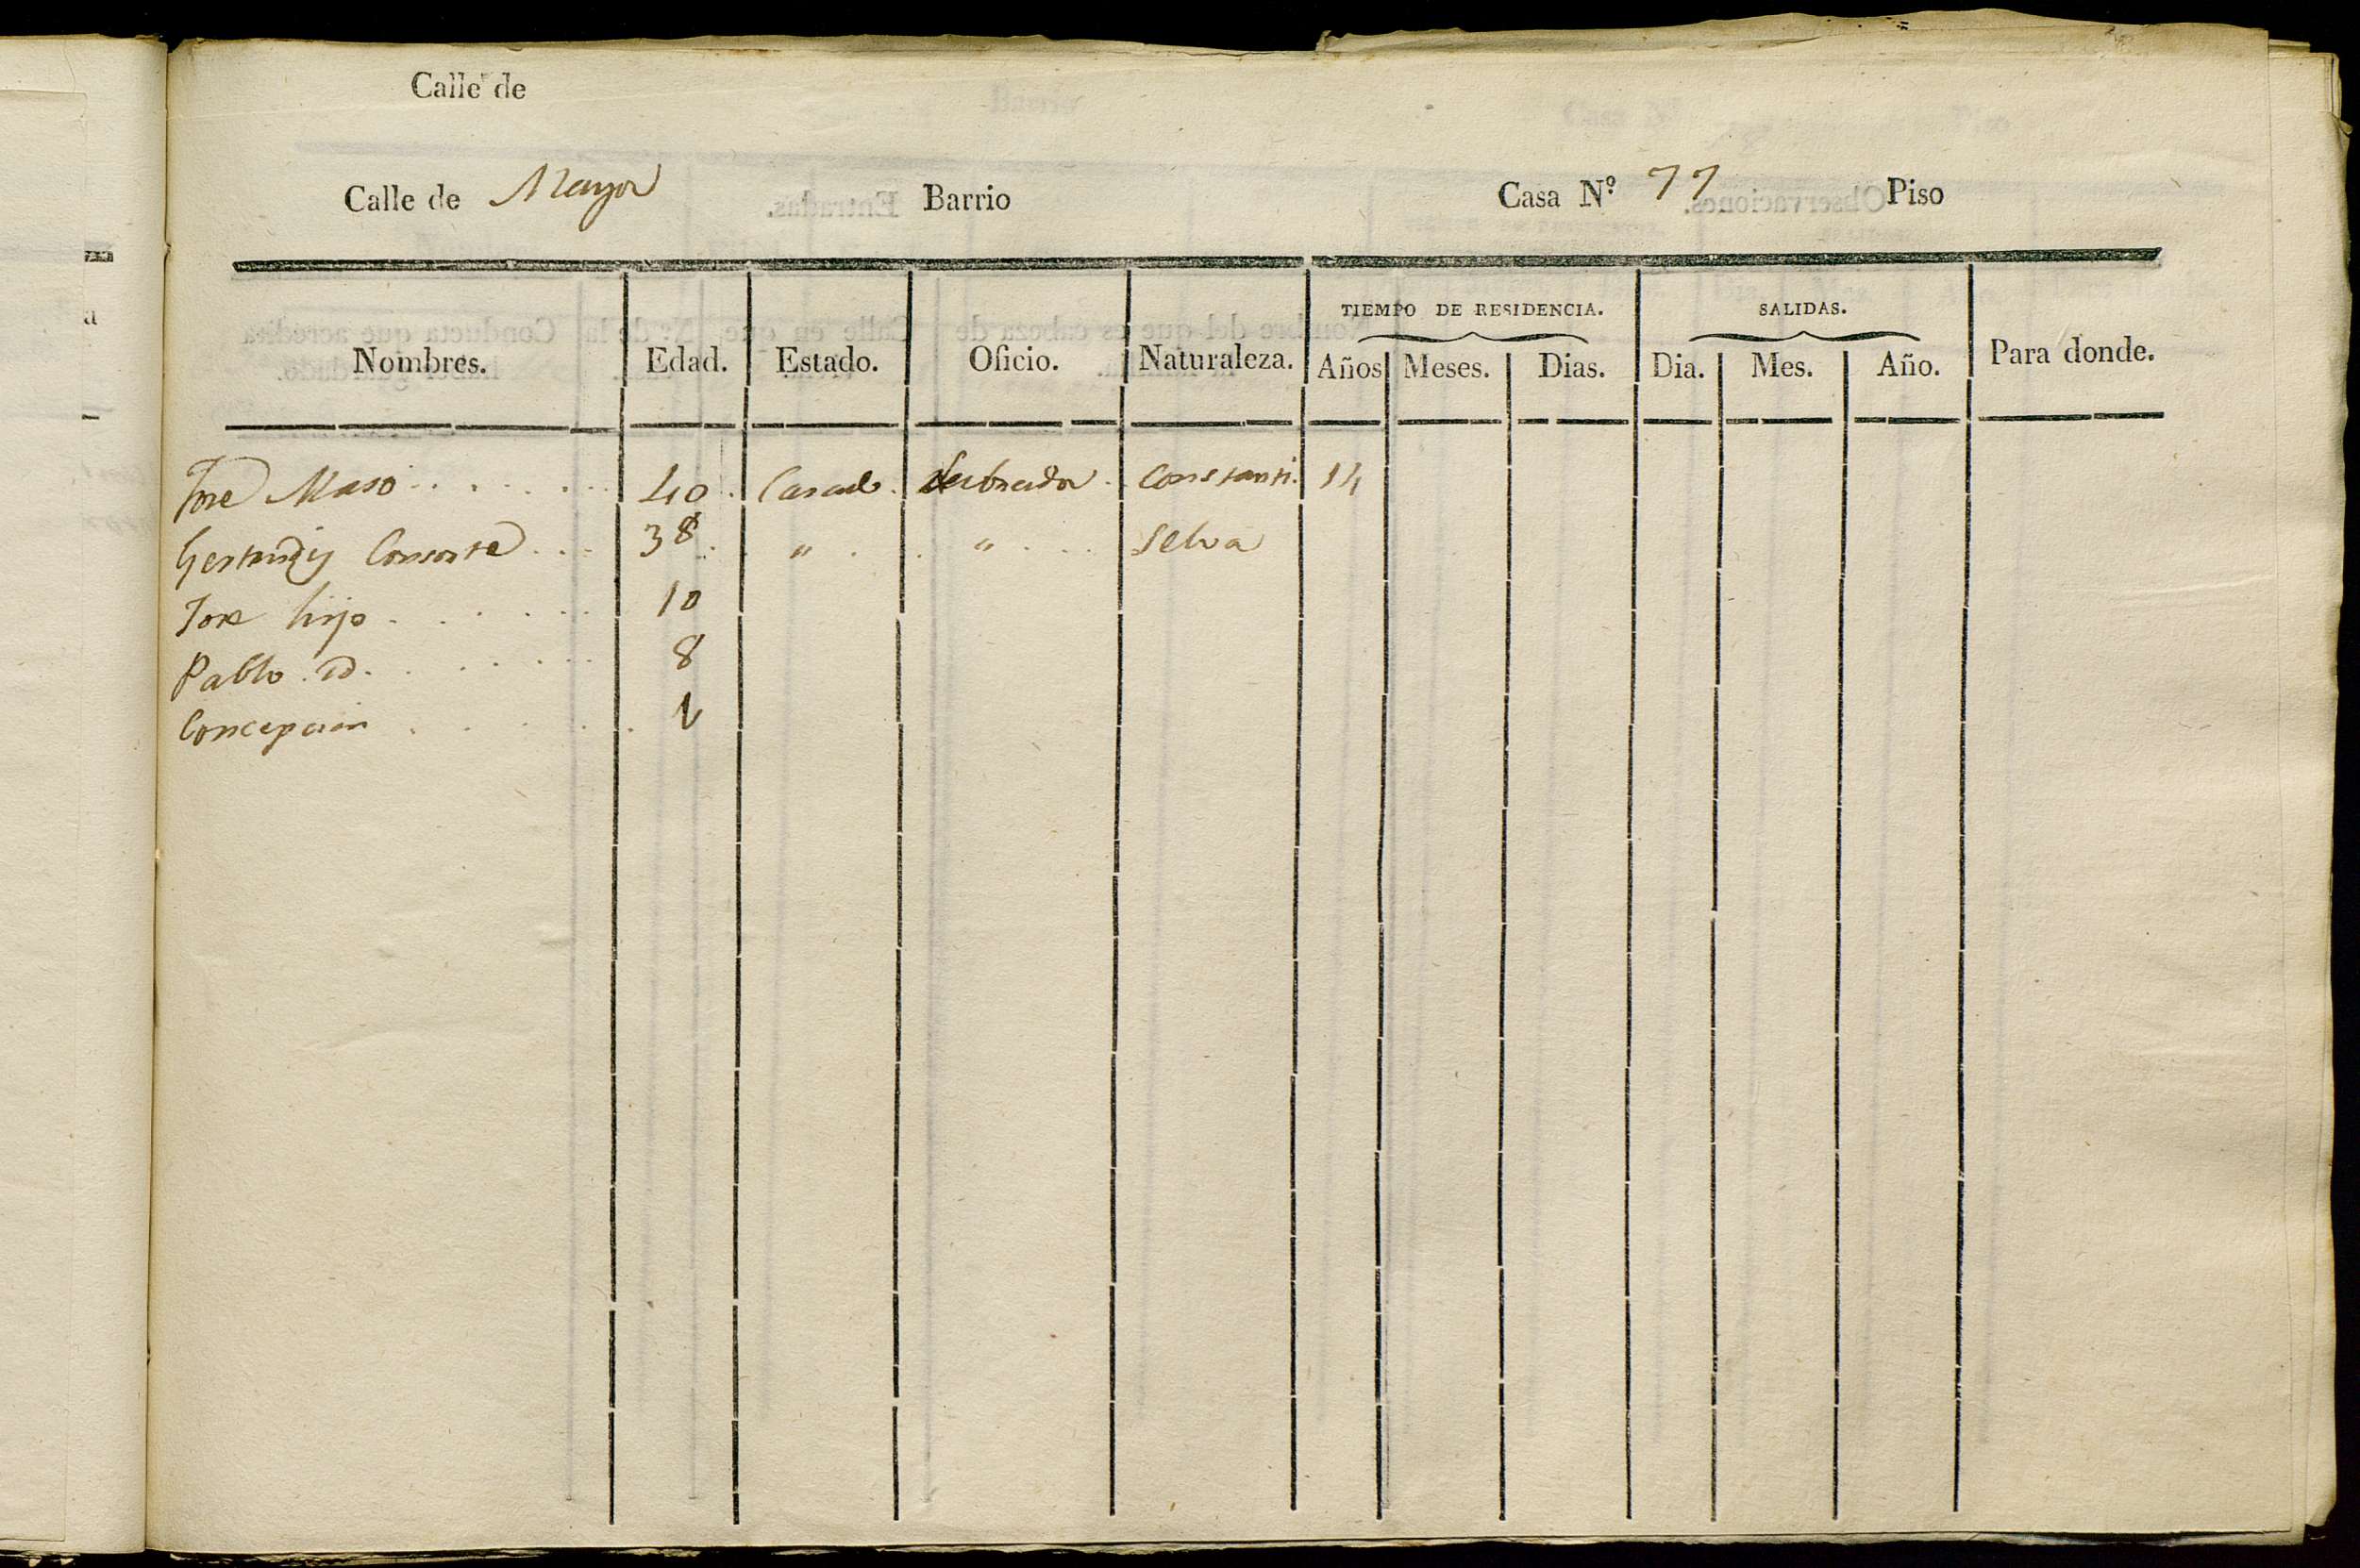 Calle de
Calle de Mayor Barrio Casa N.º 77 Piso
TIEMPO DE RESIDENCIA. SALIDAS.
Nombres. Edad. Estado. Oficio. Naturaleza. Años Meses. Dias. Dia. Mes. Año. Para donde.
Jose Maso 40. Casado. Labrador. Constanti. 14
Gertrudis Consorte 38. " " Selva
Jose hijo 10
Pablo id. 8
Concepcion